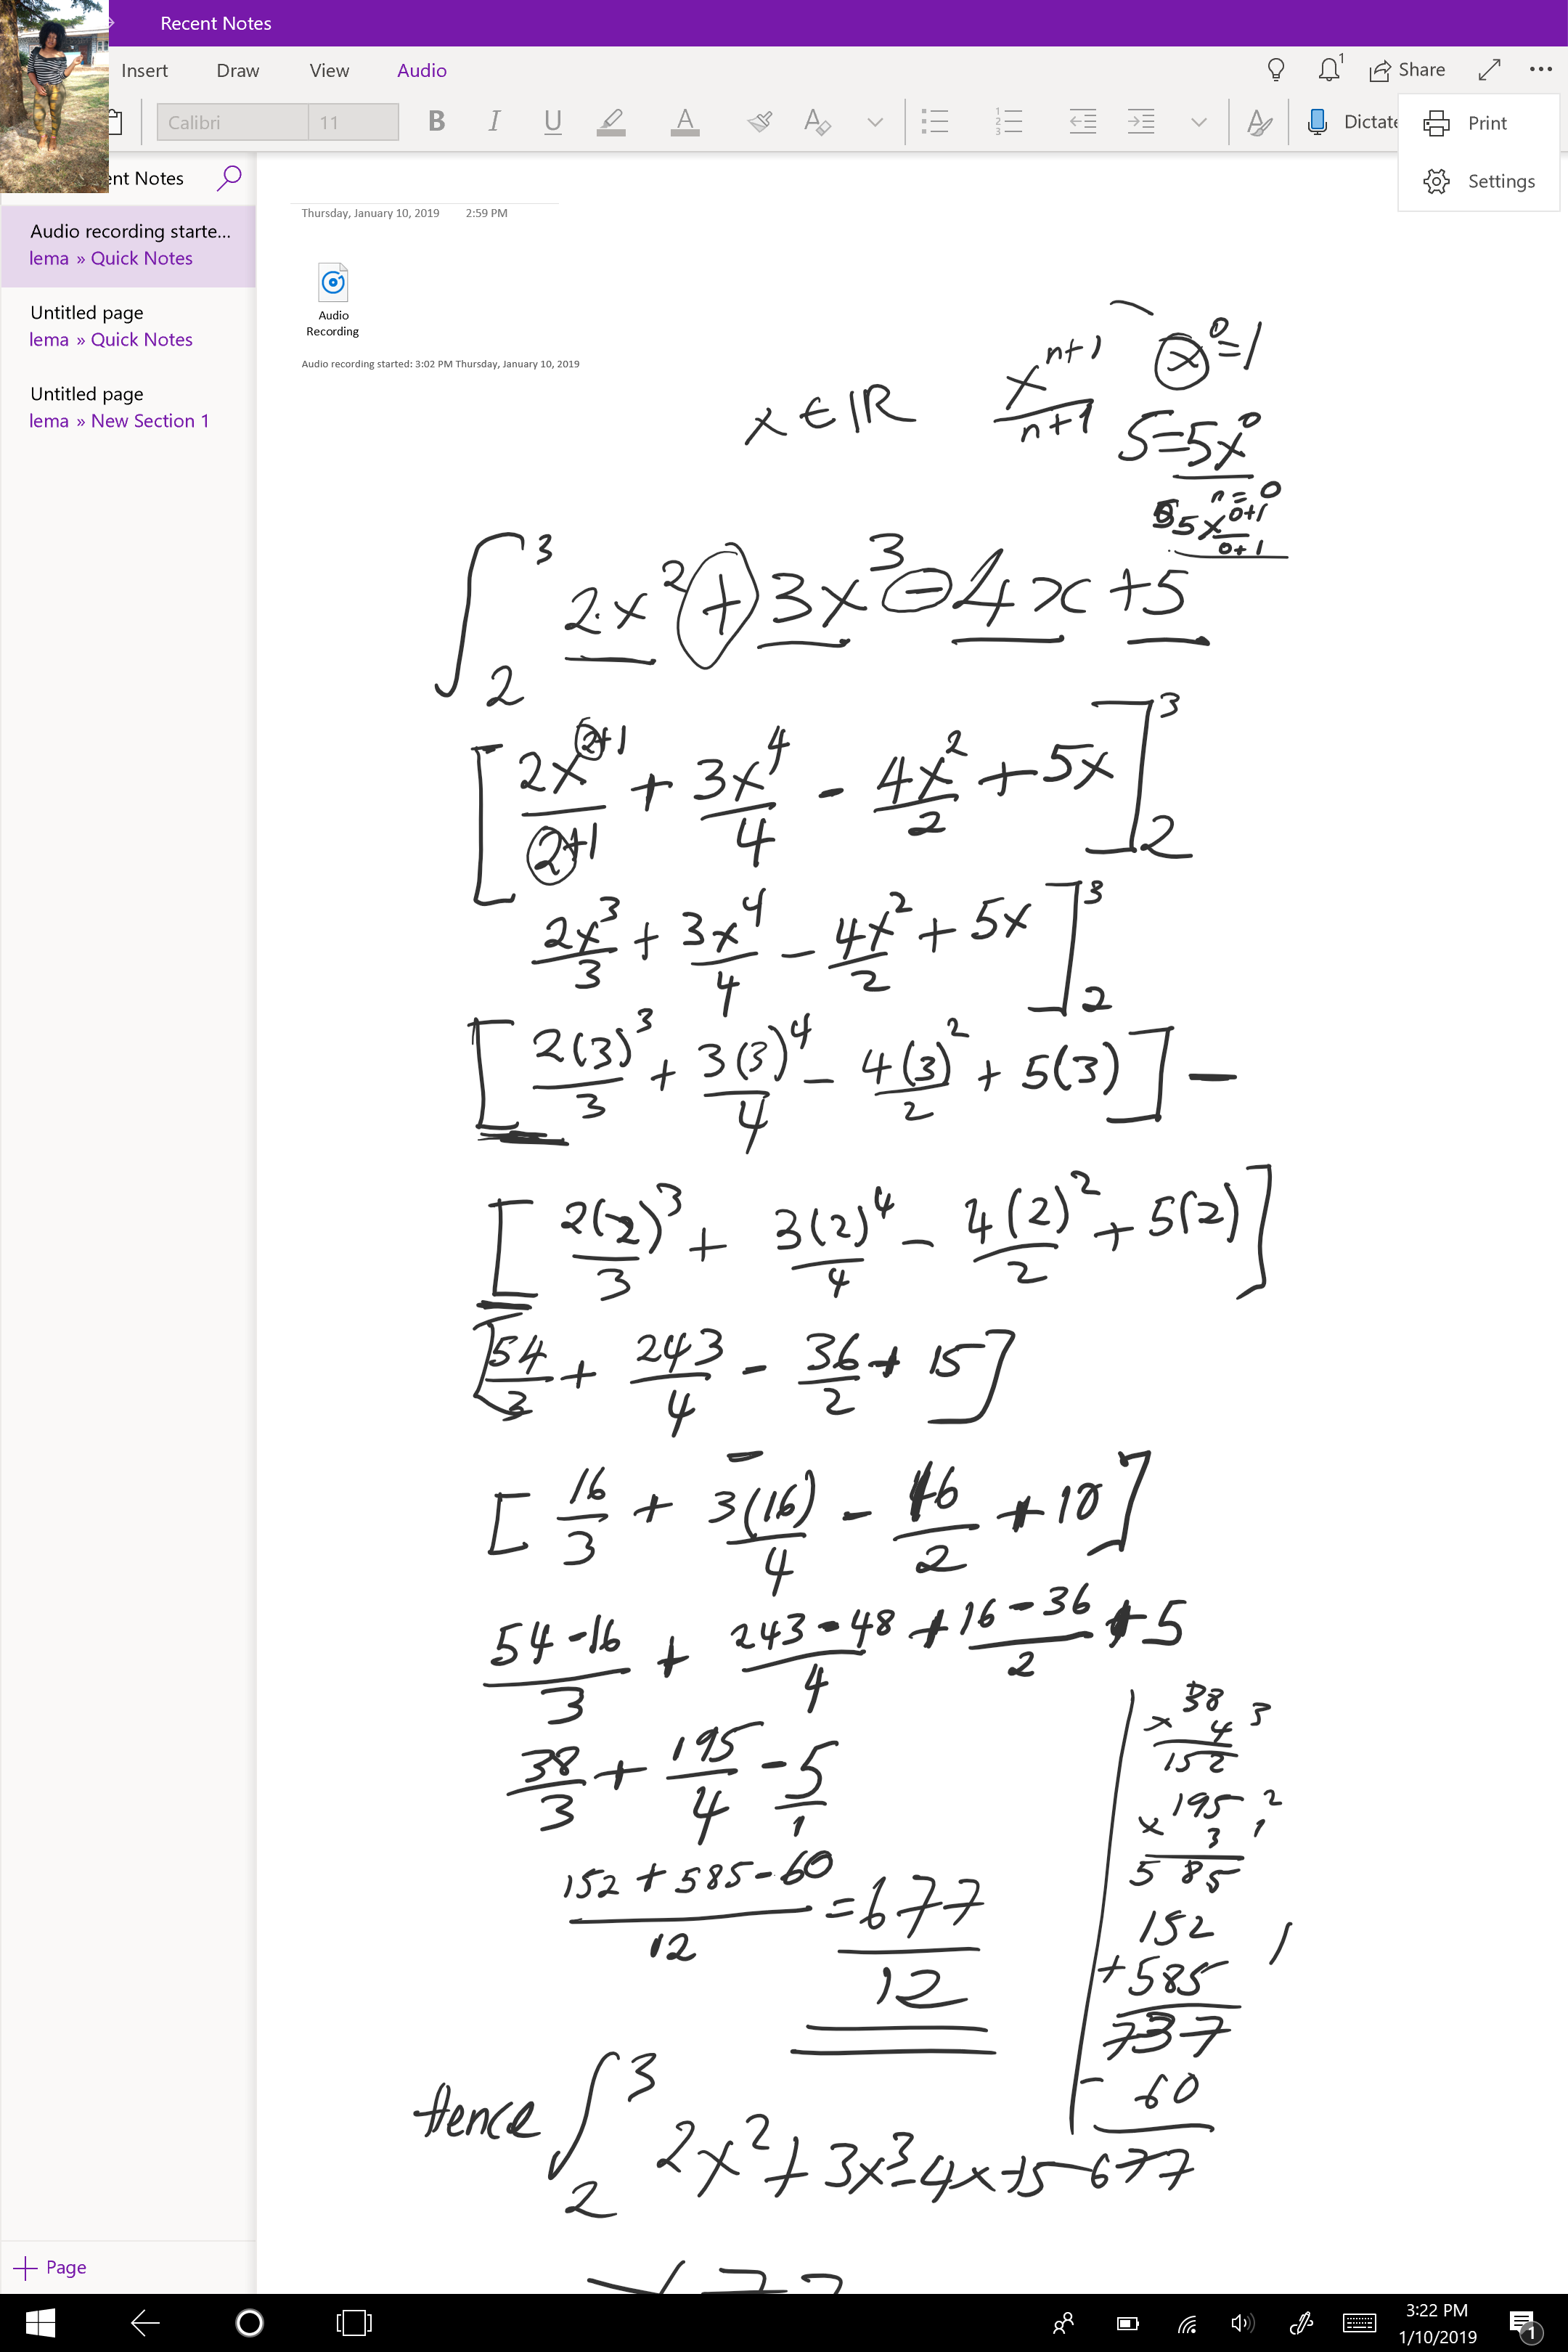 Recent Notes
Insert Draw View Audio
Share
Calibri 11 B I U A A Dictate
Print
Settings
ent Notes
Audio recording starte...
lema » Quick Notes
Untitled page
lema » Quick Notes
Untitled page
lema » New Section 1
Thursday, January 10, 2019 2:59 PM
Audio
Recording
Audio recording started: 3:02 PM Thursday, January 10, 2019
x ∈ ℝ x^(n+1)/(n+1) x^0=1
5=5x^0
n=0
5x^(0+1)/(0+1)
∫_2^3 2x^2 + 3x^3 - 4x + 5
[2x^(2+1)/(2+1) + 3x^4/4 - 4x^2/2 + 5x]_2^3
2x^3/3 + 3x^4/4 - 4x^2/2 + 5x]_2^3
[2(3)^3/3 + 3(3)^4/4 - 4(3)^2/2 + 5(3)] -
[2(2)^3/3 + 3(2)^4/4 - 4(2)^2/2 + 5(2)]
[54/3 + 243/4 - 36/2 + 15]
-
[16/3 + 3(16)/4 - 16/2 + 10]
(54-16)/3 + (243-48)/4 + (16-36)/2 + 5
38/3 + 195/4 - 5/1
(152 + 585 - 60)/12 = 677/12
38
x 4 3
152
195 2
x 3 1
585
152
+ 585
737
- 60
677
Hence ∫_2^3 2x^2 + 3x^3 - 4x + 5
+ Page
3:22 PM
1/10/2019
1